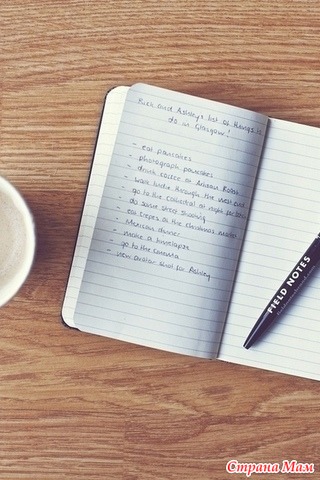 and Ashley's list of things to
do in Glasgow!
- eat pancakes
- photograph pancakes
- drink coffee at Artisan Roast
- walk through the west end
- go to the cathedral at night for
- do some street shooting
- eat crepes at the christmas market
- Mexican dinner
- make a timelapse
- go to the cinema
- new avatar shot for Ashley
FIELD NOTES
Страна Мам